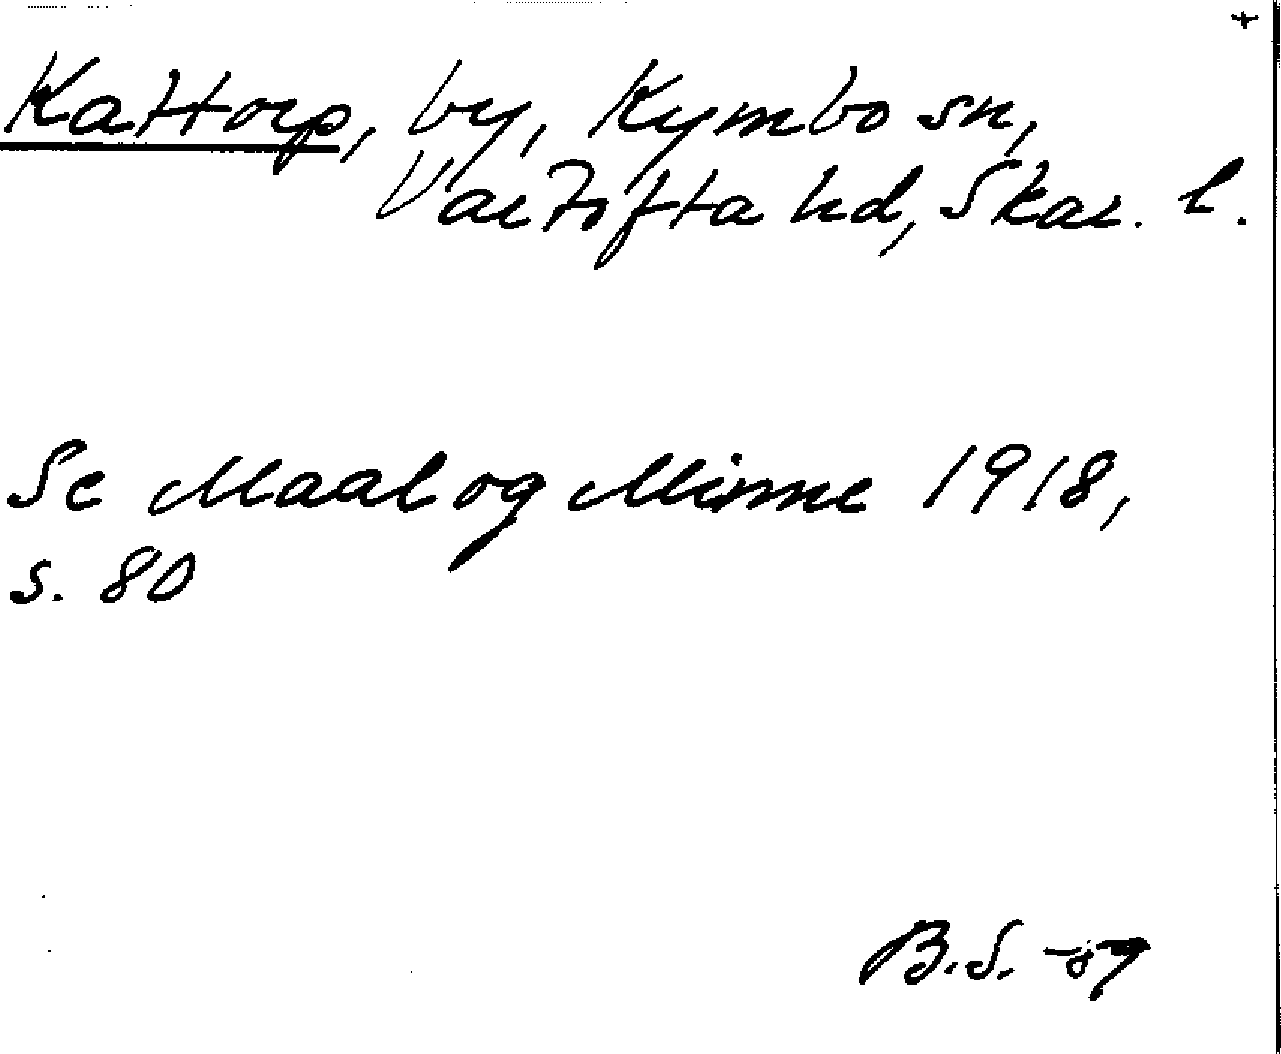 +
Kattorp, by, Kymbo sn,
Vartofta hd, Skar. l.
Se Maal og Minne 1918,
s. 80
B.S.